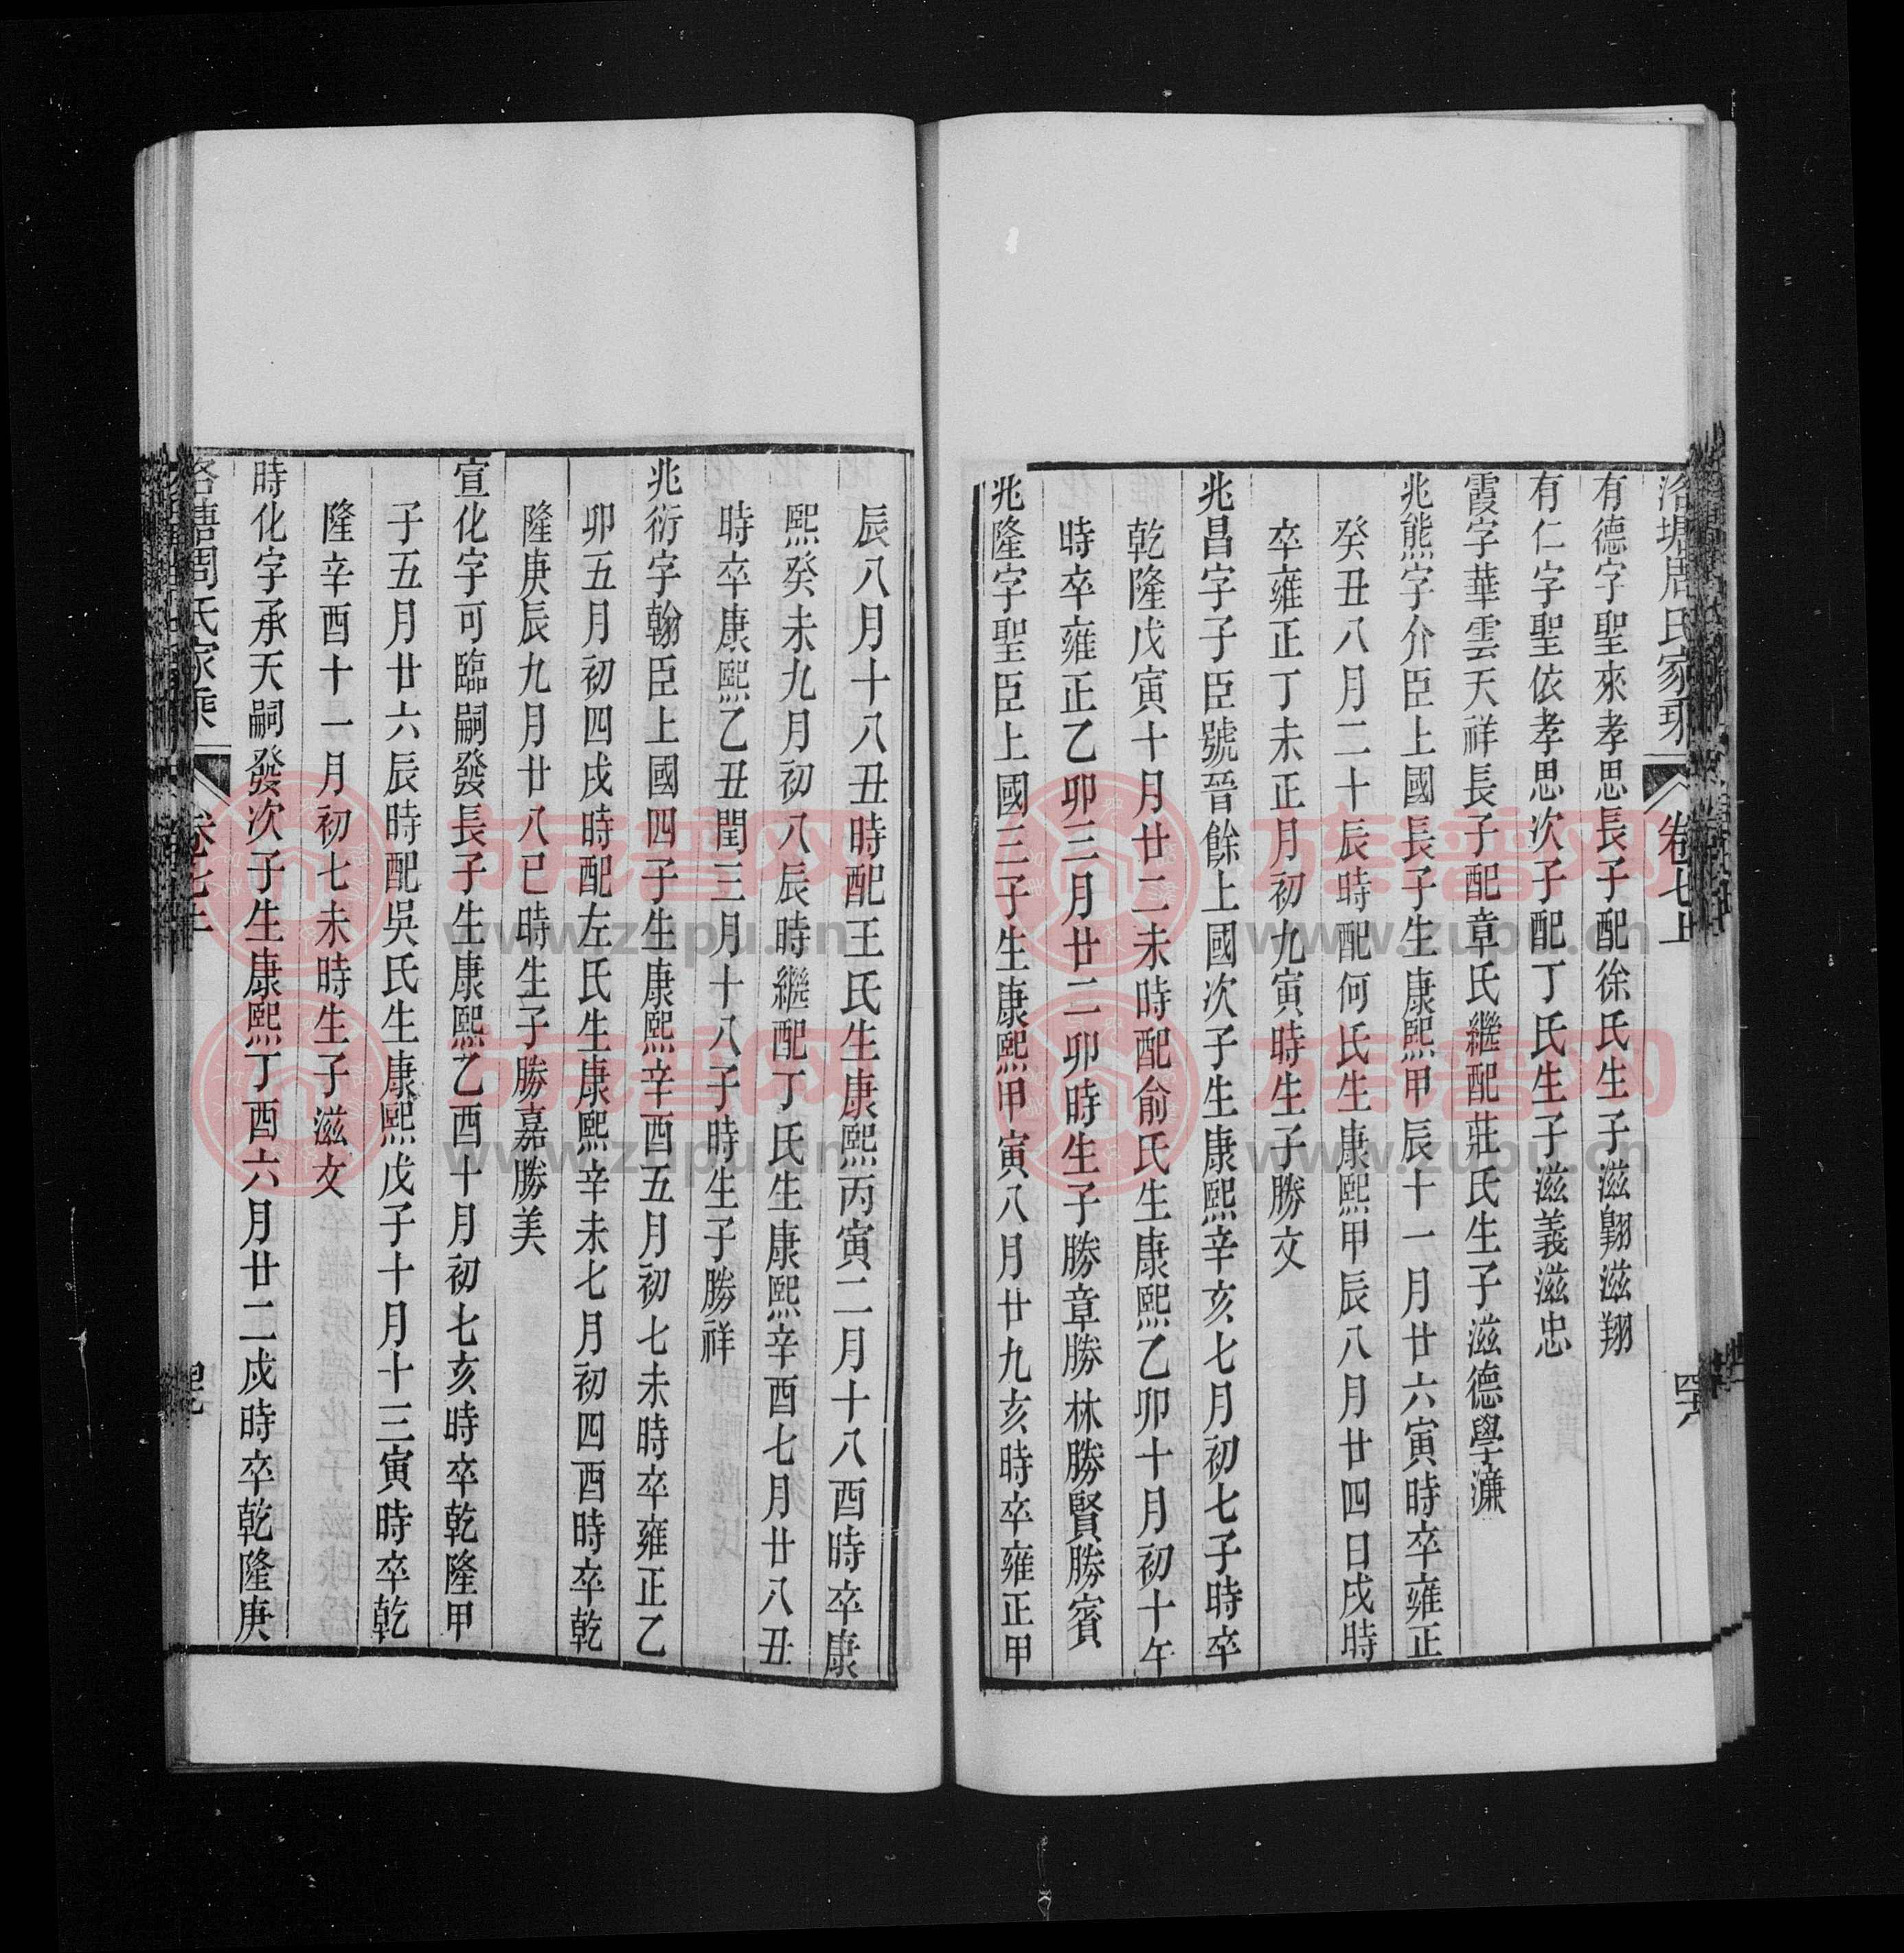 洛塘周氏家乘 卷七上 四六
有德字聖來孝思長子配徐氏生子滋翺滋翔
有仁字聖依孝思次子配丁氏生子滋義滋忠
霞字華雲天祥長子配章氏繼配莊氏生子滋德學濂
兆熊字介臣上國長子生康熙甲辰十一月廿六寅時卒雍正
癸丑八月二十辰時配何氏生康熙甲辰八月廿四日戌時
卒雍正丁未正月初九寅時生子勝文
兆昌字子臣號晉餘上國次子生康熙辛亥七月初七子時卒
乾隆戊寅十月廿二未時配俞氏生康熙乙卯十月初十午
時卒雍正乙卯三月廿二卯時生子勝章勝林勝賢勝賓
兆隆字聖臣上國三子生康熙甲寅八月廿九亥時卒雍正甲
辰八月十八丑時配王氏生康熙丙寅二月十八酉時卒康
熙癸未九月初八辰時繼配丁氏生康熙辛酉七月廿八丑
時卒康熙乙丑閏三月十八子時生子勝祥
兆衍字翰臣上國四子生康熙辛酉五月初七未時卒雍正乙
卯五月初四戌時配左氏生康熙辛未七月初四酉時卒乾
隆庚辰九月廿八巳時生子勝嘉勝美
宣化字可臨嗣發長子生康熙乙酉十月初七亥時卒乾隆甲
子五月廿六辰時配吳氏生康熙戊子十月十三寅時卒乾
隆辛酉十一月初七未時生子滋文
時化字承天嗣發次子生康熙丁酉六月廿二戌時卒乾隆庚
洛塘周氏家乘 卷七上
族譜网
www.zupu.cn
族譜网
www.zupu.cn
族譜网
www.zupu.cn
族譜网
www.zupu.cn